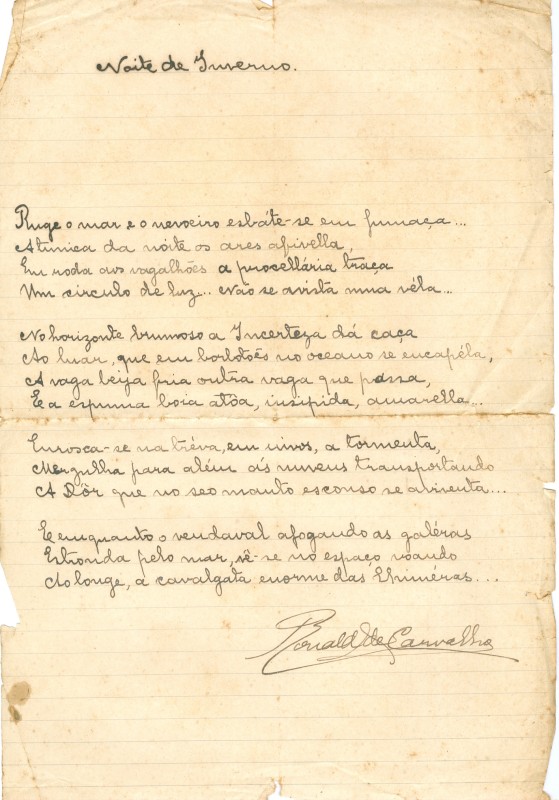 Noite de Inverno.
Ruge o mar e o nevoeiro esbáte-se em fumaça...
A tunica da nóite os ares afivella,
Em roda aos vagalhões a procellária traça
Um circulo de luz... Não se avista uma véla...
No horizonte brumoso a Incerteza dá caça
Ao luar, que em borbotões no oceano se encapéla,
A vaga beija fria outra vaga que passa,
E a espuma boia atôa, insipida, amarella...
Enrosca-se na tréva, em uivos, a tormenta,
Mergulha para além ás nuvens transportando
A Dôr que no seo manto esconso se aviventa...
E emquanto o vendaval afogando as galéras
Estronda pelo mar, vê-se no espaço voando
Ao longe, a cavalgata enorme das Chiméras...
Ronald de Carvalho